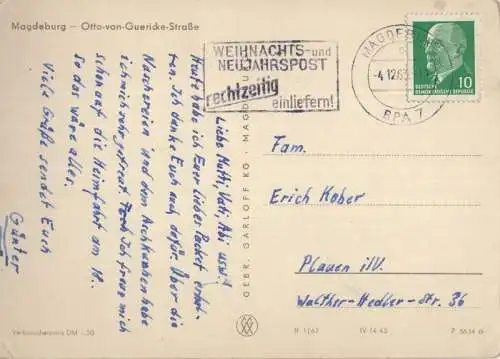 Magdeburg – Otto-von-Guericke-Straße
WEIHNACHTS- und
NEUJAHRSPOST
rechtzeitig
einliefern!
MAGDEB
-4.12.63
BPA 7
DEUTSCHE
DEMOKRATISCHE REPUBLIK
10
Liebe Mutti, Vati, Abi usw.!
Heute habe ich Euer liebes Packet erhal-
ten. Ich danke Euch auch dafür. Über die
Naschereien und den Aschkuchen habe
ich mich sehr gefreut. Ich freue mich
schon auf die Heimfahrt am 18.
So das wäre alles.
Viele Grüße sendet Euch
Günter
GEBR. GARLOFF KG. MAGDEBURG
Fam.
Erich Kober
Plauen i/V.
Walther-Hedler-Str. 36
Verbraucherpreis DM -,20
R 1/63
IV-14-43